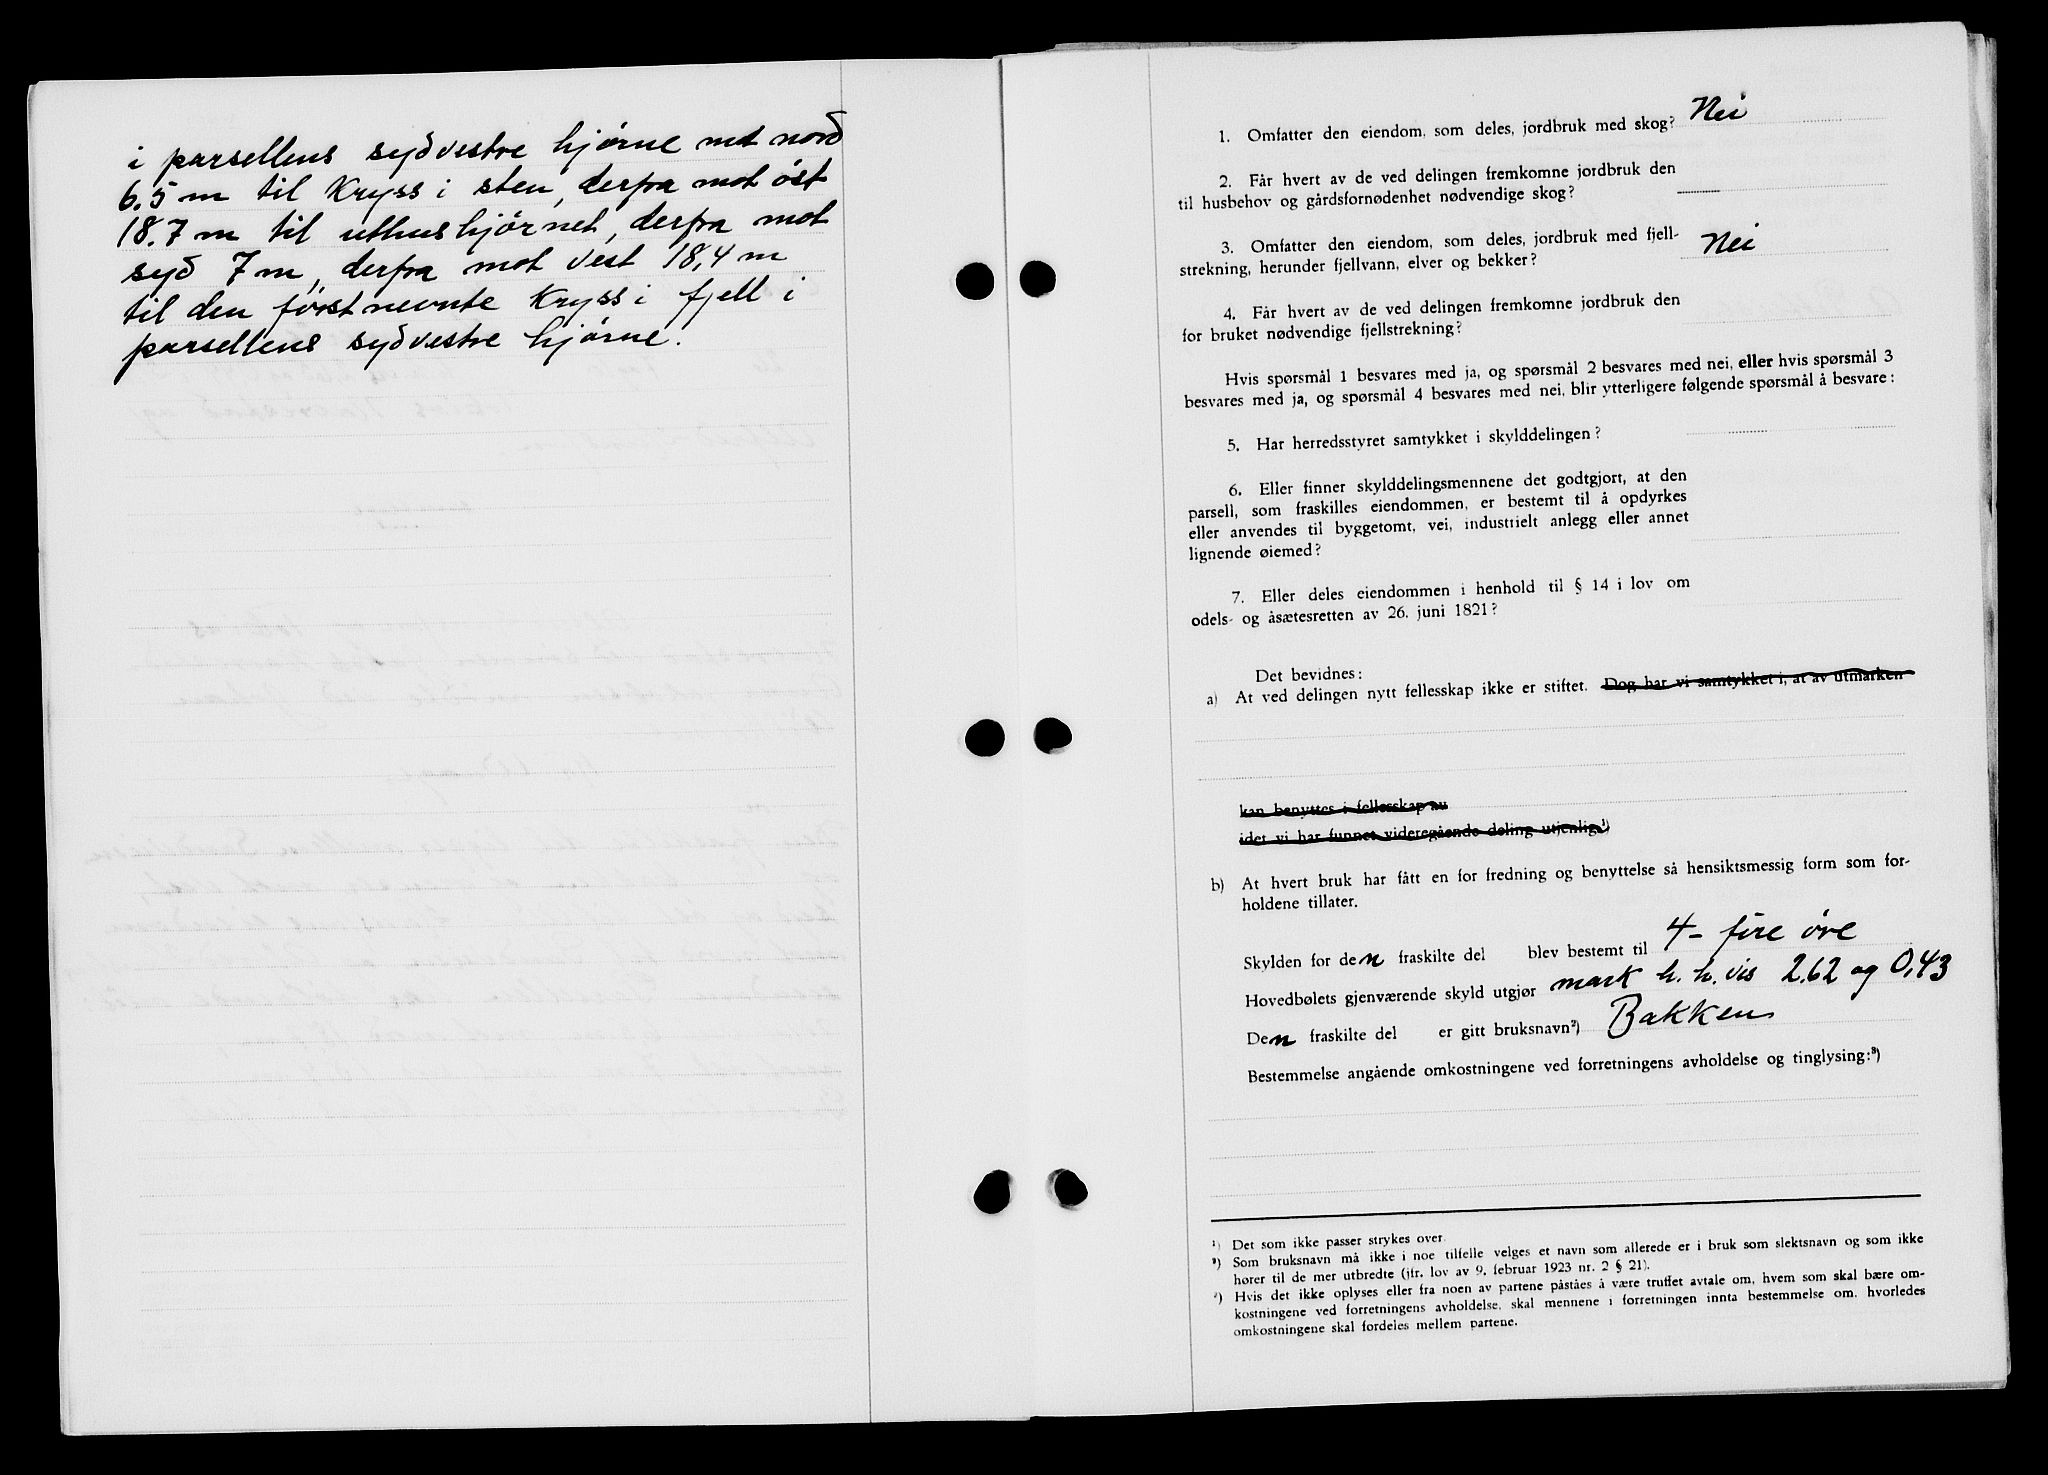 i parsellens sydvestre hjørne mot nord
6.5 m til Kryss i sten, derfra mot øst
18.7 m til uthushjørnet, derfra mot
syd 7 m, derfra mot vest 18,4 m
til den førstnevnte Kryss i fjell i
parsellens sydvestre hjørne.
1. Omfatter den eiendom, som deles, jordbruk med skog? Nei
2. Får hvert av de ved delingen fremkomne jordbruk den
til husbehov og gårdsfornødenhet nødvendige skog?
3. Omfatter den eiendom, som deles, jordbruk med fjell-
strekning, herunder fjellvann, elver og bekker? Nei
4. Får hvert av de ved delingen fremkomne jordbruk den
for bruket nødvendige fjellstrekning?
Hvis spørsmål 1 besvares med ja, og spørsmål 2 besvares med nei, eller hvis spørsmål 3
besvares med ja, og spørsmål 4 besvares med nei, blir ytterligere følgende spørsmål å besvare:
5. Har herredsstyret samtykket i skylddelingen?
6. Eller finner skylddelingsmennene det godtgjort, at den
parsell, som fraskilles eiendommen, er bestemt til å opdyrkes
eller anvendes til byggetomt, vei, industrielt anlegg eller annet
lignende øiemed?
7. Eller deles eiendommen i henhold til § 14 i lov om
odels- og åsætesretten av 26. juni 1821?
Det bevidnes:
a) At ved delingen nytt fellesskap ikke er stiftet. Dog har vi samtykket i, at av utmarken
kan benyttes i fellesskap av
idet vi har funnet videregående deling utjenlig.¹)
b) At hvert bruk har fått en for fredning og benyttelse så hensiktsmessig form som for-
holdene tillater.
Skylden for den fraskilte del blev bestemt til 4- fire øre
Hovedbølets gjenværende skyld utgjør mark h. h. vis 2.62 og 0,43
Den fraskilte del er gitt bruksnavn²) Bakken
Bestemmelse angående omkostningene ved forretningens avholdelse og tinglysing:³)
¹) Det som ikke passer strykes over.
²) Som bruksnavn må ikke i noe tilfelle velges et navn som allerede er i bruk som slektsnavn og som ikke
hører til de mer utbredte (jfr. lov av 9. februar 1923 nr. 2 § 21).
³) Hvis det ikke oplyses eller fra noen av partene påståes å være truffet avtale om, hvem som skal bære om-
kostningene ved forretningens avholdelse, skal mennene i forretningen innta bestemmelse om, hvorledes
omkostningene skal fordeles mellem partene.